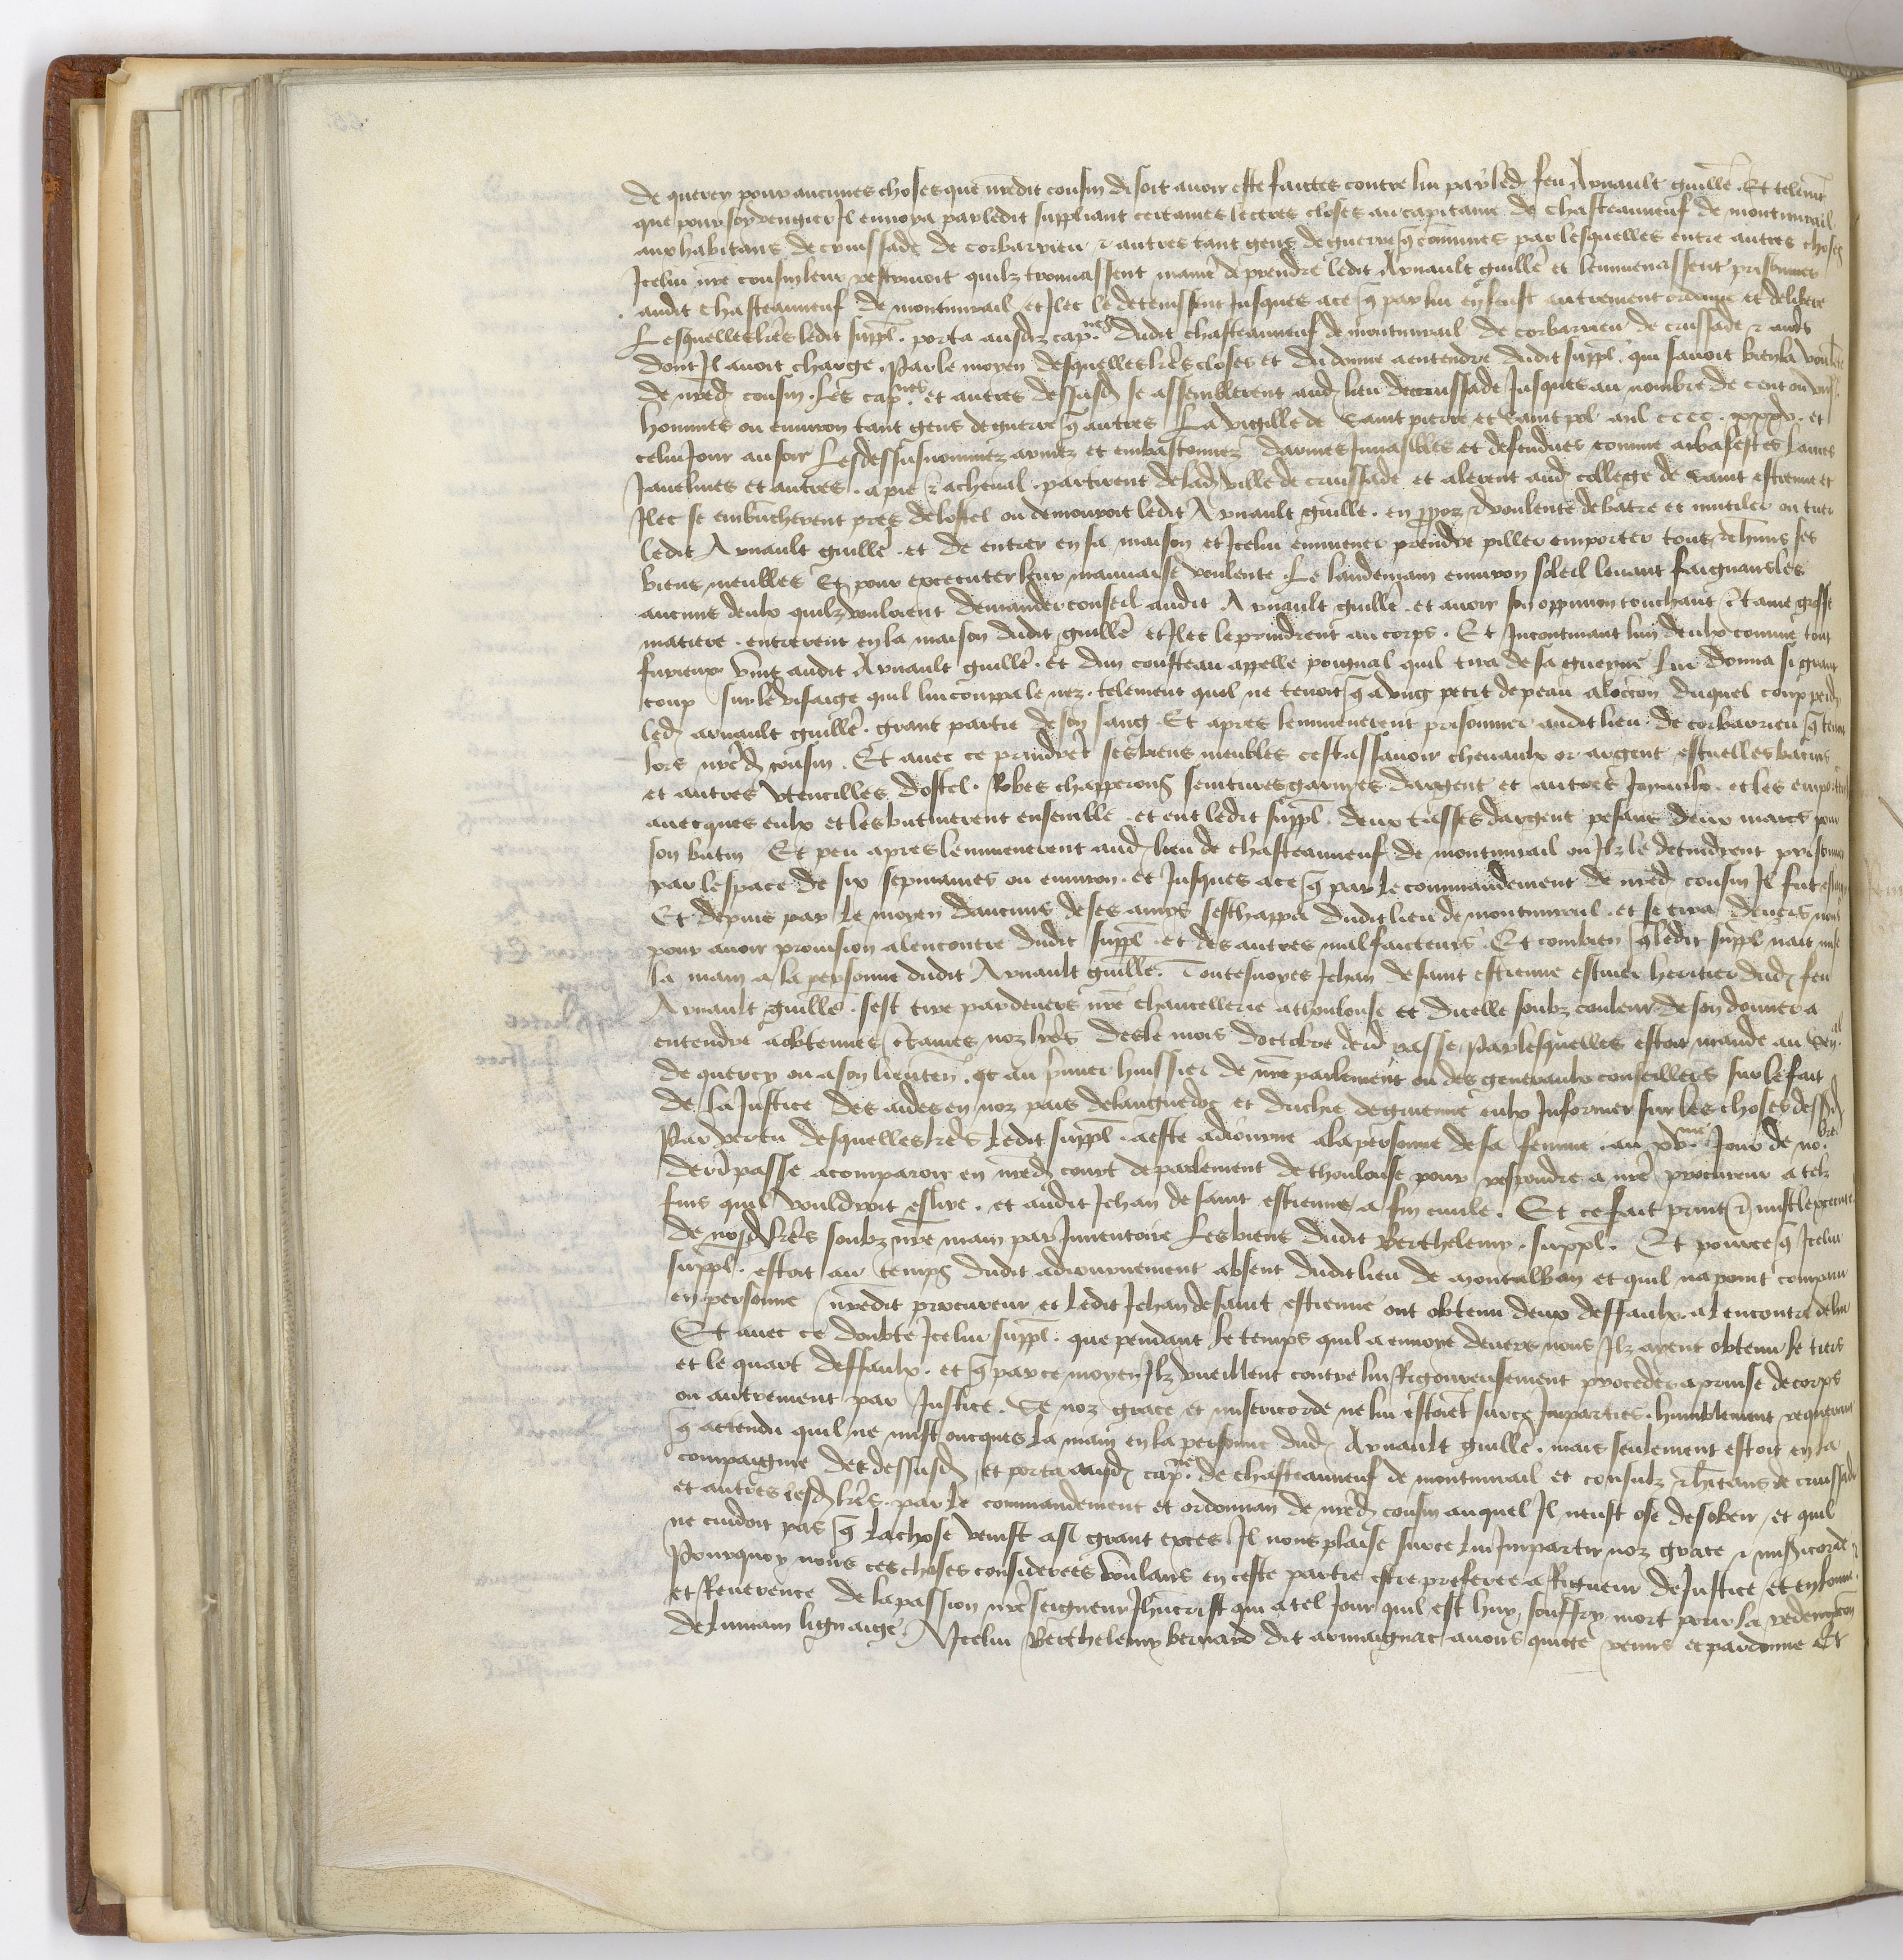 de quercy pour aucunes choses que nredit cousin disoit avoir este faictes contre lui par led feu Arnault guille . Et telemt
que pour soy vengier Il envoya par ledit suppliant certaines lectres closes au capitaine de chasteauneuf de montmirail
aux habitans de cruissade de corbarrieu & autres tant gens de guerre q comunes par lesquelles entre autres choses
Icelui nre cousin leur rescrivoit quilz trouvassent maniere de prendre ledit Arnault guille et lemmenassent prisonnier
audit chasteauneuf de montmirail et Ilec le detenissent Jusques ace q par lui en feust autrement ordonne et delibere
Lesquelles lres ledit suppl . porta ausdiz capnes dudit chasteauneuf de montmirail de corbarrieu de crussade & auts
dont Il avoit charge . Par le moyen desquelles lres closes et du donne a entendre dudit suppl . qui savoit bien la voulente
de nred cousin . Les capnes et autres dessusd se assemblerent aud lieu de crussade Jusques au nombre de cent ou
hommes ou environ tant gens de guerre q autres La vigille de saint pierre et saint pol mil cccc . xxxv . et
celui Jour au soir Lesdessusnommez armez et embastonnez darmes Invasibles et defendues comme arbalestes lances
Javelines et autres . apie & acheval . partirent de lad ville de crussade et alerent aud college de saint estienne et
Ilec se embucherent pres de lostel ou demouroit ledit Arnault guille . en ppoz & voulente de batre et mutiler ou tuer
ledit Arnault guille . et de entrer en sa maison et Icelui emmener prendre piller emporter tous & chuns ses
biens meubles Et pour excecuter leur mauvaise voulente . Le landemain environ soleil levant faignans les
aucuns deulx quilz vouloient demander conseil audit Arnault guille . et avoir son oppinion touchant ctaine grosse
matiere . entrerent en la maison dudit guille et Ilec le prindrent au corps . Et Incontinant lun deulx comme tout
furieux vint audit Arnault guille . et dun cousteau appelle pongnal quil tira de sa gueyne Lui donna si grant
coup sur le visaige quil lui couppa le nez . telement quil ne tenoit q a ung petit de peau duquel coup perdi
led arnault guille . grant partie de son sang Et apres lemmenerent prisonnier audit lieu de corbarrieu q tenoit
lors nred cousin . Et avec ce prindret ses biens meubles cestassavoir chevaulx or argent escuelles bacins
et autres utencilles dostel . Robes chapperons seintures garnyes dargent et autres Joyaulx . et les emporterent
avecques eulx et les butinerent ensemble . et eut ledit suppl . deux tasses dargent pesans deux marcs pour
son butin Et peu apres lemmenerent aud lieu de chasteauneuf de montmirail ou Ilz le detindrent prisonnier
par lespace de six sepmaines ou environ . et Jusques ace q par le commandement de nred cousin Il fut eslargi
Et depuis par le moyen daucuns de ses amys seschappa dudit lieu de montmirail . et se tira devers nous
pour avoir provision alencontre dudit suppl . et des autres malfaicteurs . Et combien q ledit suppl nait mise
la main a la personne dudit Arnault guille . Toutesvoyes Jehan de saint estienne escuier heritier dud feu
Arnault guille . sest tire pardevers nre chancellerie a thoulouse et dicelle soubz couleur de son donner a
entendre a obtenues ctaines noz lres desle mois doctobre derd passe , Par lesquelles estoit mande au senal
de quercy ou a son lieuten . et au pmier huissier de nre parlement ou des generaulx conseillers sur le fait
de la Justice des aides en noz pais de languedoc et duchie de guienne eulx Informer sur les choses dessusd
Par vertu desquelles lres Ledit suppl . a este adiourne a la personne de sa femme . au xvme Jour de nobre
derd passe a comparoir en nred court de parlement de thoulouse pour respondre a nre procureur a telz
fins quil vouldroit eslire . et audit Jehan de saint estienne a fin civile . Et ce fait print & mist lexecuteur
de nosd lres soubz nre main par Inventoire Les biens dudit Berthelemy . suppl . Et pource q Icelui
suppl . estoit au temps dudit adiournement absent dudit lieu de montalban et quil na point comparu
en personne nredit procureur et Ledit Jehan de saint estienne ont obtenu deux deffaulx alencontre de lui
Et avec ce doubte Icelui suppl . que pendant le temps quil a envoye devers nous Ilz ayent obtenu le tiers
et le quart deffaulx . et q par ce moyen Ilz vueillent contre lui Rigoureusement proceder a prinse de corps
ou autrement par Justice . Se noz grace et misericorde ne lui estoient sur ce Imparties . humblement requerant
q actendu quil ne mist oncques la main en la personne dud Arnault guille . mais seulement estoit en la
compaignie des dessusd et porta ausd capne de chasteauneuf de montmirail et consulz & hitans de crussade
et autres lesd lres . par le commandement et ordonnan de nred cousin auquel Il neust ose desobeir , et quil
ne cuidoit pas q la chose venist asi grant exces . Il nous plaise sur ce lui Impartir noz grace & misicorde
Pourquoy nous ces choses considerees voulans en ceste partie estre preferee a Rigueur de Justice et en lonneur
et Reverence de la passion nre seigneur Jhucrist qui a tel Jour quil est huy souffry mort pour la redempcon
de lumain lignaige . A Icelui Berthelemy bernard dit armaignac avons quicte remis et pardonne Et